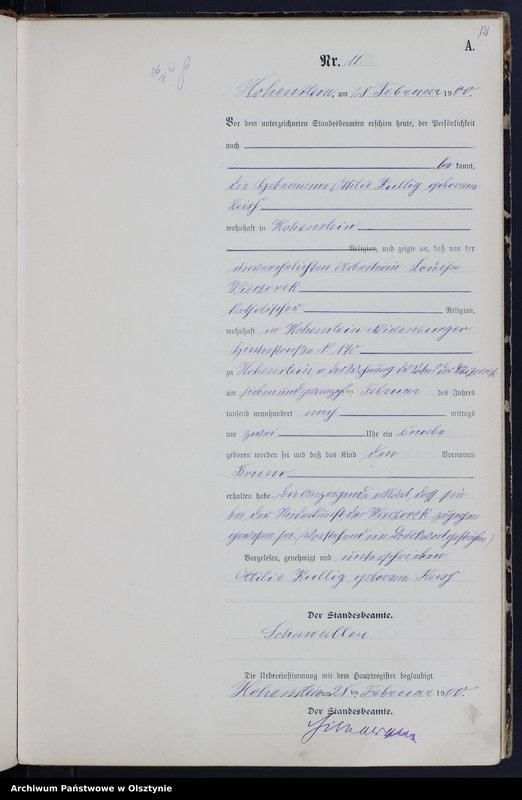 121
A.
Nr. 11
Hohenstein, am 28 Februar 1900.
Vor dem unterzeichneten Standesbeamten erschien heute, der Persönlichkeit
nach
be kannt,
die Hebeamme Ottilie Kullig geborene
wohnhaft in Hohenstein
Religion, und zeigte an, daß von der
unverehelichten Arbeiterin Louise
Wieczorek
katholischer Religion,
wohnhaft in Hohenstein
No 170
zu Hohenstein in der Wohnung des
am siebenundzwanzigsten Februar des Jahres
tausend neunhundert nach mittags
um zwei Uhr ein Knabe
geboren worden sei und daß das Kind den Vornamen
Bruno
erhalten habe. Die Anzeigende erklärt, daß sie
bei der Niederkunft der Wieczorek zugegen
gewesen sei. (Vorstehend ein Druckwort gestrichen)
Vorgelesen, genehmigt und unterschrieben
Ottilie Kullig geborene
Der Standesbeamte.
Die Uebereinstimmung mit dem Hauptregister beglaubigt.
Hohenstein am 28ten Februar 1900.
Der Standesbeamte.
Archiwum Państwowe w Olsztynie